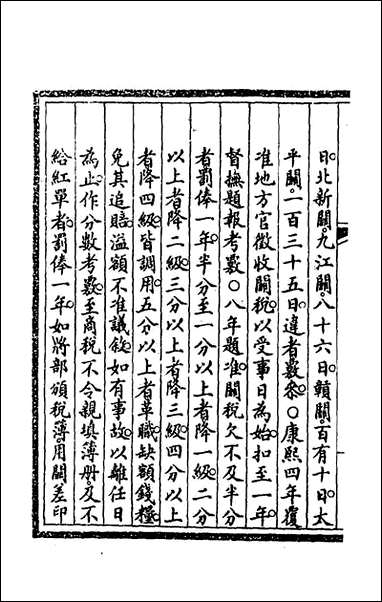 日北新關九江關八十六日贛關百有十日太
平關一百三十五日違者覈參○康熙四年覆
准地方官徵收關稅以受事日為始扣至一年
督撫題報考覈○八年題准關稅欠不及半分
者罰俸一年半分至一分以上者降一級二分
以上者降二級三分以上者降三級四分以上
者降四級皆調用五分以上者革職缺額錢糧
免其追賠溢額不准議敘如有事故以離任日
為止作分數考覈至商稅不令親填簿冊及不
給紅單者罰俸一年如將部頒稅簿用關差印